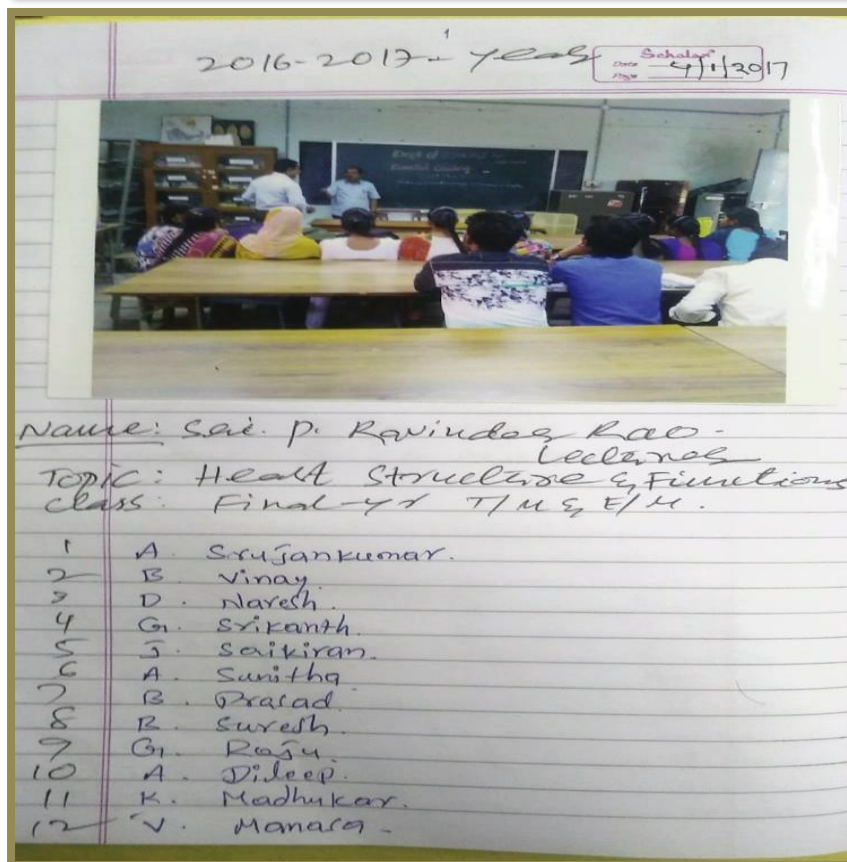 1
2016-2017 - year
Scholar
Date 4/1/2017
Page
Dept of
Name: Sri. P. Ravinder Rao -
Lecturer
Topic: Heart Structure & Functions
class: Final-yr T/M & E/M.
1 A. Srujankumar.
2 B. Vinay.
3 D. Naresh.
4 G. Srikanth.
5 J. Saikiran.
6 A. Sunitha
7 B. Prasad
8 B. Suresh.
9 G. Raju.
10 A. Dileep.
11 K. Madhukar.
12 V. Manasa -